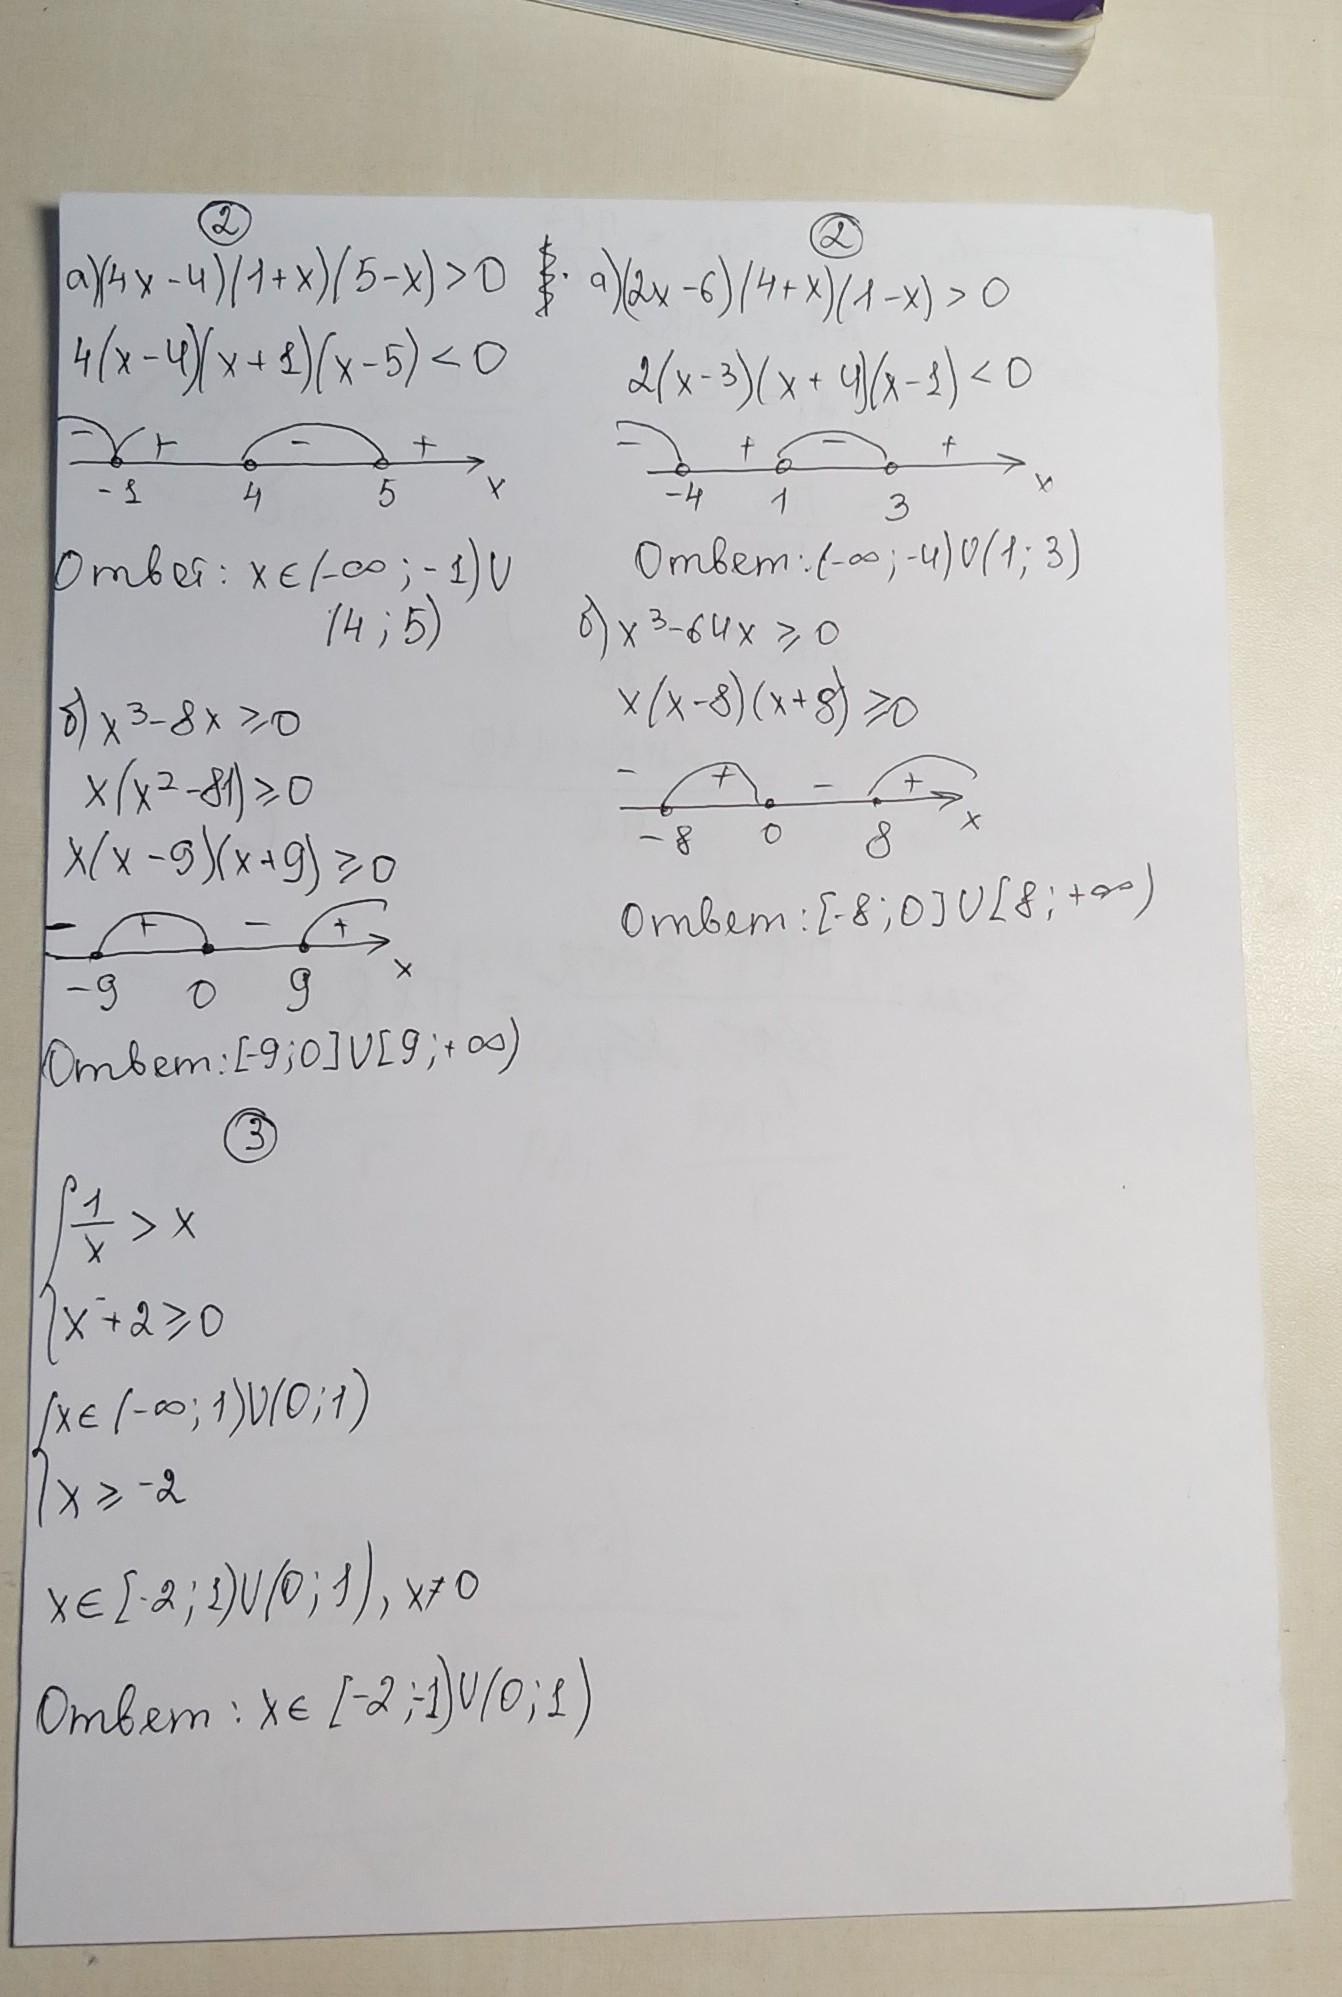 ②
а)(4x-4)(1+x)(5-x)>0
4(x-4)(x+1)(x-5)<0
- + - +
-1 4 5 x
Ответ: x∈(-∞;-1)∪
(4;5)
б)x³-8x≥0
x(x²-81)≥0
x(x-9)(x+9)≥0
- + - +
-9 0 9 x
Ответ:[-9;0]∪[9;+∞)
③
1/x > x
x+2≥0
x∈(-∞;1)∪(0;1)
x≥-2
x∈[-2;1)∪(0;1), x≠0
Ответ: x∈[-2;-1)∪(0;1)
②
а)(2x-6)(4+x)(1-x)>0
2(x-3)(x+4)(x-1)<0
- + - +
-4 1 3 x
Ответ:(-∞;-4)∪(1;3)
б)x³-64x≥0
x(x-8)(x+8)≥0
- + - +
-8 0 8 x
Ответ:[-8;0]∪[8;+∞)